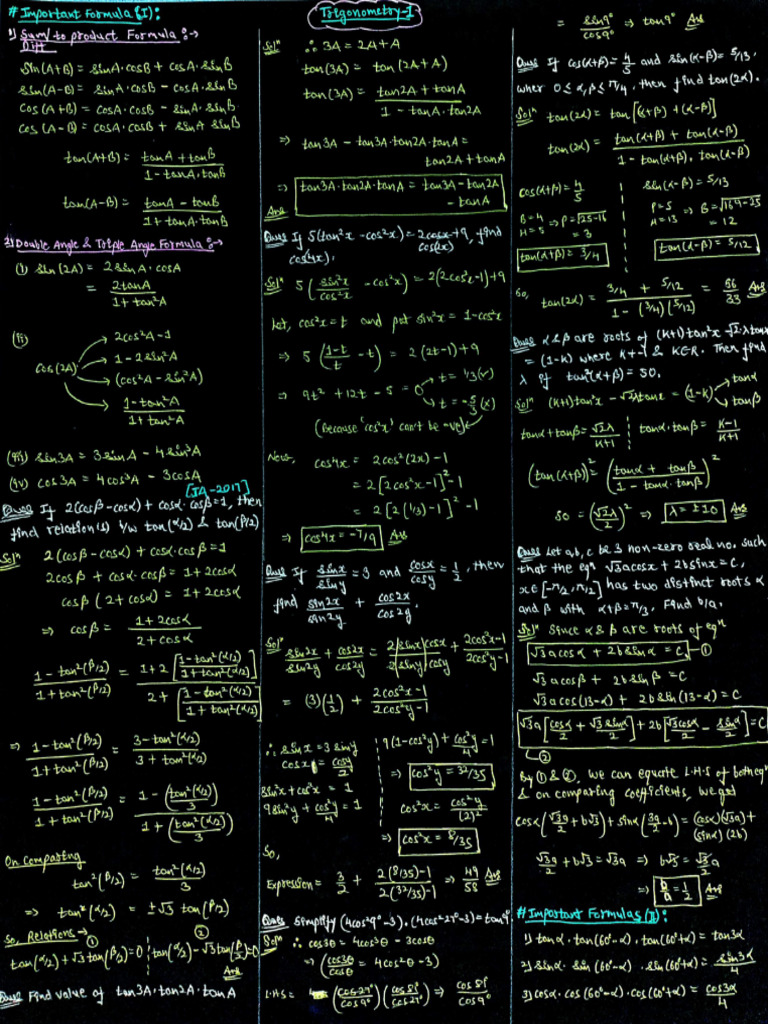 Trigonometry-1
# Important Formula (I):
1) Sum/Diff to product Formula :→
Sin(A+B) = sinA·cosB + cosA·sinB
Sin(A-B) = sinA·cosB - cosA·sinB
Cos(A+B) = cosA·cosB - sinA·sinB
Cos(A-B) = cosA·cosB + sinA sinB
tan(A+B) = (tanA + tanB)/(1 - tanA·tanB)
tan(A-B) = (tanA - tanB)/(1 + tanA tanB)
2) Double Angle & Triple Angle Formula :→
(i) Sin(2A) = 2sinA·cosA
= 2tanA/(1 + tan²A)
(ii) Cos(2A)
→ 2cos²A-1
→ 1-2sin²A
→ (cos²A - sin²A)
→ (1-tan²A)/(1+tan²A)
(iii) sin3A = 3sinA - 4sin³A
(iv) cos3A = 4cos³A - 3cosA
[JA-2017]
Ques If 2(cosβ-cosα) + cosα·cosβ=1, then
find relation(s) b/w tan(α/2) & tan(β/2)
Solⁿ 2(cosβ-cosα) + cosα·cosβ=1
2cosβ + cosα·cosβ = 1+2cosα
cosβ(2+cosα) = 1+2cosα
⇒ cosβ = (1+2cosα)/(2+cosα)
(1-tan²(β/2))/(1+tan²(β/2)) = (1+2[(1-tan²(α/2))/(1+tan²(α/2))])/(2+[(1-tan²(α/2))/(1+tan²(α/2))])
⇒ (1-tan²(β/2))/(1+tan²(β/2)) = (3-tan²(α/2))/(3+tan²(α/2))
(1-tan²(β/2))/(1+tan²(β/2)) = (1-(tan²(α/2)/3))/(1+(tan²(α/2)/3))
On comparing
tan²(β/2) = tan²(α/2)/3
⇒ tan(α/2) = ±√3 tan(β/2)
So, Relations →
① tan(α/2)+√3 tan(β/2)=0 ② tan(α/2)-√3 tan(β/2)=0
Ans
Ques Find value of tan3A·tan2A·tanA
Solⁿ ∴ 3A = 2A+A
tan(3A) = tan(2A+A)
tan(3A) = (tan2A + tanA)/(1 - tanA·tan2A)
⇒ tan3A - tan3A·tan2A·tanA =
tan2A + tanA
⇒ tan3A·tan2A·tanA = tan3A - tan2A
- tanA
Ans
Ques If 5(tan²x - cos²x) = 2cos2x+9, find
cos(2x)
cos(4x).
Solⁿ 5(sin²x/cos²x - cos²x) = 2(2cos²x-1)+9
Let, cos²x=t and put sin²x=1-cos²x
⇒ 5((1-t)/t - t) = 2(2t-1)+9
⇒ 9t² + 12t - 5 = 0
→ t = 1/3 (✓)
→ t = -5/3 (x)
(Because 'cos²x' can't be -ve)
Now,
cos4x = 2cos²(2x) - 1
= 2[2cos²x-1]²-1
= 2[2(1/3)-1]²-1
⇒ cos4x = -7/9 Ans
Ques If sinx/siny = 3 and cosx/cosy = 1/2, then
find sin2x/sin2y + cos2x/cos2y.
Solⁿ sin2x/sin2y + cos2x/cos2y = 2sinx cosx/2siny cosy + (2cos²x-1)/(2cos²y-1)
= (3)(1/2) + (2cos²x-1)/(2cos²y-1)
∴ sinx = 3siny
cosx = cosy/2
sin²x + cos²x = 1
9sin²y + cos²y/4 = 1
9(1-cos²y) + cos²y/4 = 1
⇒ cos²y = 32/35
cos²x = cos²y/(2)²
⇒ cos²x = 8/35
So,
Expression = 3/2 + (2(8/35)-1)/(2(32/35)-1) ⇒ 49/58 Ans
Ques Simplify (4cos²9°-3)·(4cos²27°-3)=tan9°
Solⁿ ∴ cos3θ = 4cos³θ - 3cosθ
⇒ (cos3θ/cosθ = 4cos²θ-3)
LHS = (cos27°/cos9°)(cos81°/cos27°) ⇒ cos81°/cos9°
= sin9°/cos9° ⇒ tan9° Ans
Ques If cos(α+β) = 4/5 and sin(α-β) = 5/13,
wher 0 ≤ α,β ≤ π/4, then find tan(2α).
Solⁿ tan(2α) = tan[(α+β)+(α-β)]
tan(2α) = (tan(α+β) + tan(α-β))/(1 - tan(α+β)·tan(α-β))
cos(α+β) = 4/5
B=4
H=5 ⇒ P=√25-16
= 3
tan(α+β) = 3/4
sin(α-β) = 5/13
P=5
H=13 ⇒ B=√169-25
= 12
tan(α-β) = 5/12
So, tan(2α) = (3/4 + 5/12)/(1-(3/4)(5/12)) = 56/33 Ans
Ques α & β are roots of (K+1)tan²x-√2·λtanx
= (1-K) where K≠-1 & K∈R. Then find
λ if tan²(α+β) = 50.
Solⁿ (K+1)tan²x - √2λtanx = (1-K) → tanα
→ tanβ
tanα+tanβ = √2λ/(K+1) tanα·tanβ = (K-1)/(K+1)
(tan(α+β))² = ((tanα + tanβ)/(1-tanα·tanβ))²
50 = (√2λ/2)² ⇒ λ = ±10 Ans
Ques Let a,b,c be 3 non-zero real no. such
that the eqⁿ √3acosx + 2bsinx=C,
x∈[-π/2,π/2] has two distinct roots α
and β with α+β=π/3. Find b/a.
Solⁿ Since α & β are roots of eqⁿ
√3acosα + 2bsinα = C —①
√3acosβ + 2bsinβ = C
√3acos(π/3-α) + 2bsin(π/3-α) = C
√3a[cosα/2 + √3sinα/2] + 2b[√3cosα/2 - sinα/2] = C
②
By ① & ②, we can equate L.H.S of both eqⁿ
& on comparing coefficients, we get
cosα(√3a/2 + b√3) + sinα(3a/2 - b) = (cosα)(√3a) +
(sinα)(2b)
√3a/2 + b√3 = √3a ⇒ b√3 = √3/2 a
⇒ b/a = 1/2 Ans
# Important Formulas (II):
1) tanα·tan(60°-α)·tan(60°+α) = tan3α
2) sinα·sin(60°-α)·sin(60°+α) = sin3α/4
3) cosα·cos(60°-α)·cos(60°+α) = cos3α/4